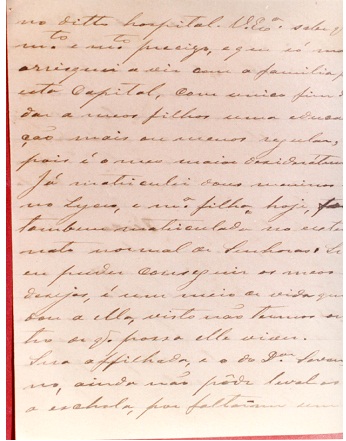 no ditto hospital. V. Exª. sabe q
mto e mto preciso, e que só me
arrisquei a vir com a familia p
esta Capital, com unico fim d
dar a meus filhos uma educa
ção mais ou menos regular,
pois é o meu maior desideratum
Já matriculei dous meninos
no Lyceo, e mª filha, hoje,
tambem matriculada no exter
nato normal de Senhoras. Se
eu puder conseguir os meos
desejos, é um meio de vida que
dou a ella, visto não termos ou
tro de q. possa ella viver.
Sua affilhada, e o do Dor Severi
no, ainda não pôde leval-os
a eschola, por faltarem